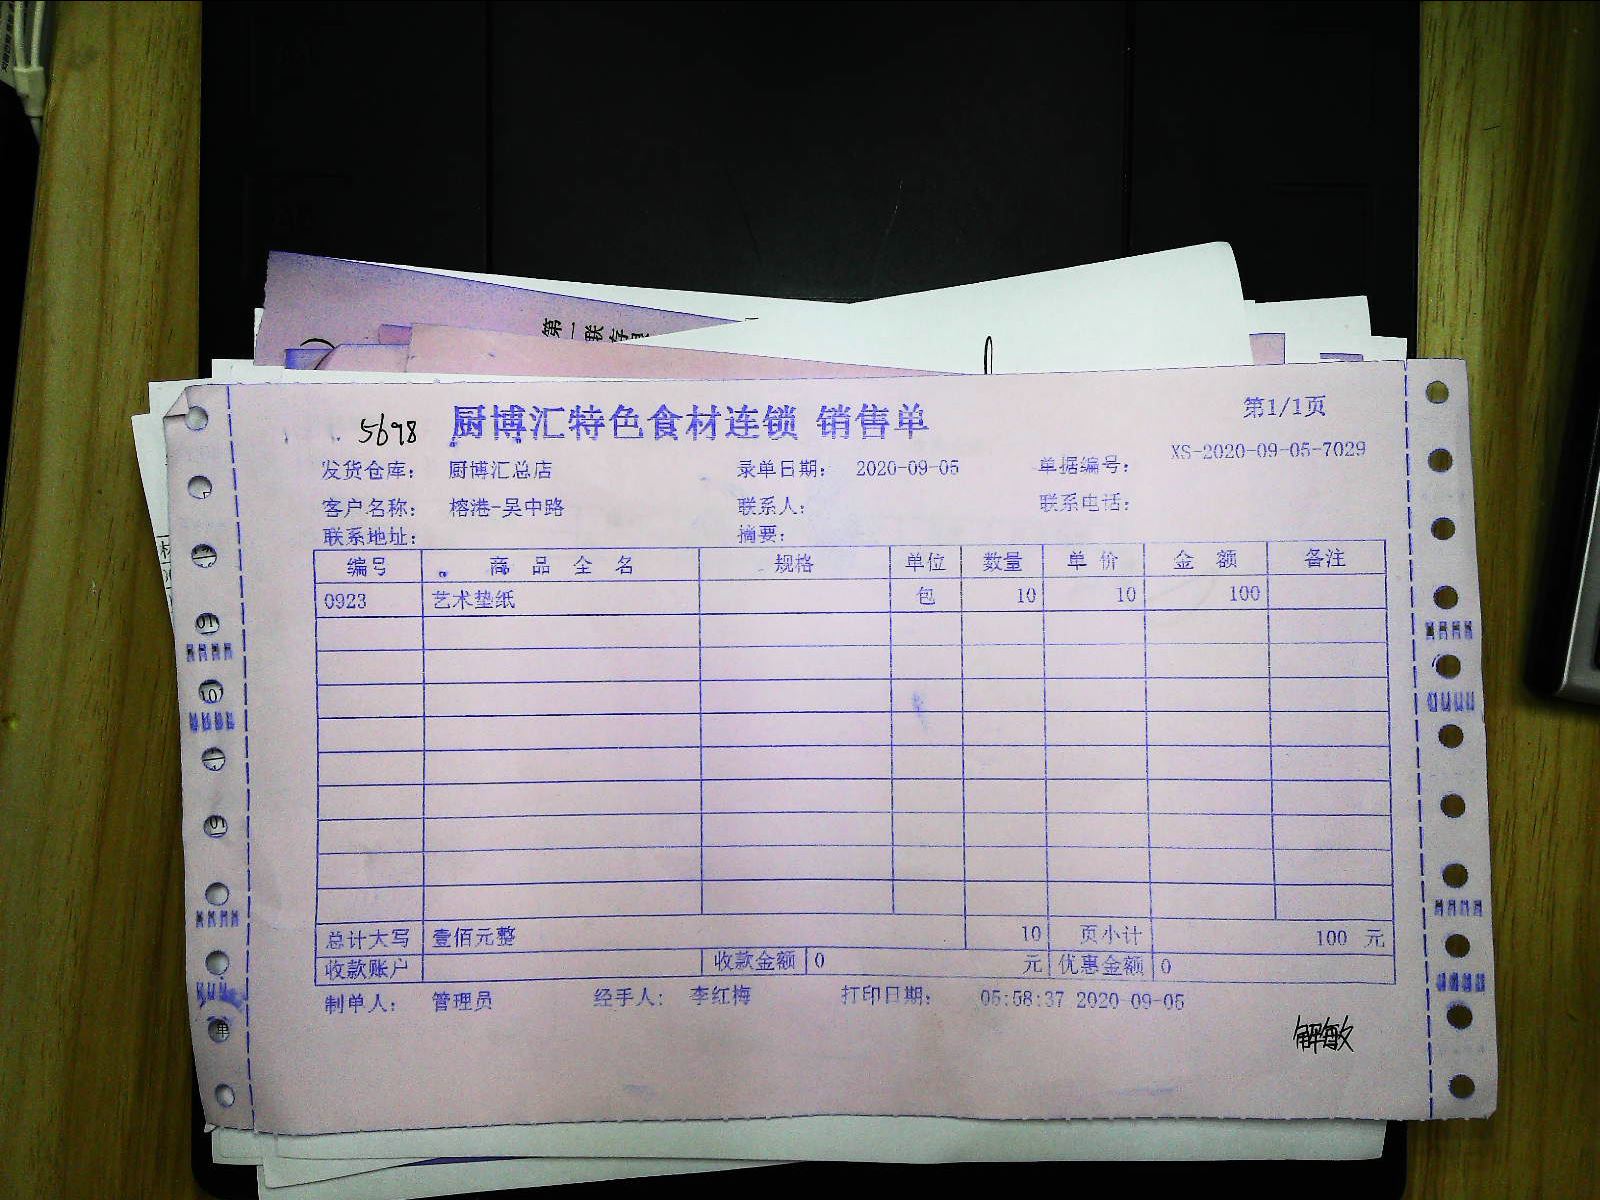 第一联存
5698 厨博汇特色食材连锁 销售单 第1/1页
发货仓库： 厨博汇总店 录单日期： 2020-09-05 单据编号： XS-2020-09-05-7029
客户名称： 榕港-吴中路 联系人： 联系电话：
联系地址： 摘要：
编号 商品全名 规格 单位 数量 单价 金额 备注
0923 艺术垫纸 包 10 10 100
总计大写 壹佰元整 10 页小计 100 元
收款账户 收款金额 0 元 优惠金额 0
制单人： 管理员 经手人： 李红梅 打印日期： 05:58:37 2020-09-05
解敏